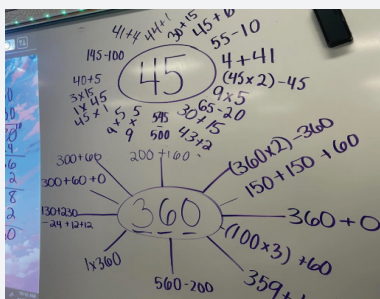 41+4
44+1
30+15
45+0
55-10
145-100
45
4+41
(45×2)-45
40+5
3×15
1×45
45×1
9×5
65-20
5
×
9
5
×
9
545
500
30+15
43+2
300+60
200+160
(360×2)-360
300+60+0
150+150+60
360
130+230
-24+12+12
360+0
(100×3)+60
1×360
560-200
359+